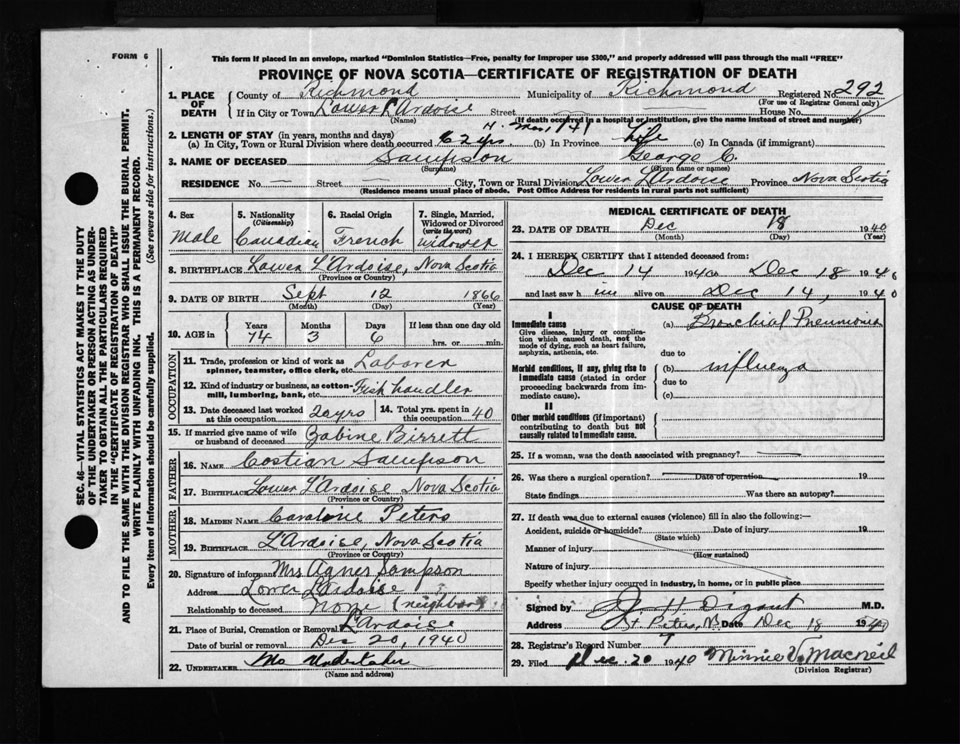 FORM 6
This form if placed in an envelope, marked "Dominion Statistics—Free, penalty for improper use $300," and properly addressed will pass through the mail "FREE"
PROVINCE OF NOVA SCOTIA—CERTIFICATE OF REGISTRATION OF DEATH
SEC. 46—VITAL STATISTICS ACT MAKES IT THE DUTY
OF THE UNDERTAKER OR PERSON ACTING AS UNDER-
TAKER TO OBTAIN ALL THE PARTICULARS REQUIRED
IN THE "CERTIFICATE OF REGISTRATION OF DEATH"
AND TO FILE THE SAME WITH THE DIVISION REGISTRAR WHO SHALL ISSUE THE BURIAL PERMIT.
WRITE PLAINLY WITH UNFADING INK. THIS IS A PERMANENT RECORD.
Every item of information should be carefully supplied. (See reverse side for instructions.)
1. PLACE OF DEATH County of Richmond Municipality of Richmond Registered No. 292
(For use of Registrar General only)
If in City or Town Lower L'Ardoise Street House No.
(Name) (If death occurred in a hospital or institution, give the name instead of street and number)
2. LENGTH OF STAY (in years, months and days)
(a) In City, Town or Rural Division where death occurred (b) In Province Life (c) In Canada (if immigrant)
3. NAME OF DECEASED Sampson George C.
(Surname) (Given name or names)
RESIDENCE No. — Street — City, Town or Rural Division Lower L'Ardoise Province Nova Scotia
(Residence means usual place of abode. Post Office Address for residents in rural parts not sufficient)
4. Sex Male
5. Nationality (Citizenship) Canadian
6. Racial Origin French
7. Single, Married, Widowed or Divorced (write the word) Widower
8. BIRTHPLACE Lower L'Ardoise, Nova Scotia
(Province or Country)
9. DATE OF BIRTH Sept 12 1866
(Month) (Day) (Year)
10. AGE in Years Months Days If less than one day old
74 3 6 hrs. or min.
OCCUPATION
11. Trade, profession or kind of work as spinner, teamster, office clerk, etc. Laborer
12. Kind of industry or business, as cotton-mill, lumbering, bank, etc. Fish handler
13. Date deceased last worked at this occupation 20 yrs
14. Total yrs. spent in this occupation 40
15. If married give name of wife or husband of deceased Zabine Birrett
FATHER
16. NAME Costian Sampson
17. BIRTHPLACE Lower L'Ardoise Nova Scotia
(Province or Country)
MOTHER
18. MAIDEN NAME Caroline Peters
19. BIRTHPLACE L'Ardoise, Nova Scotia
(Province or Country)
20. Signature of informant Mrs Agnes Sampson
Address Lower L'Ardoise
Relationship to deceased none (neighbor)
21. Place of Burial, Cremation or Removal L'Ardoise
Date of burial or removal Dec 20, 1940
22. UNDERTAKER No Undertaker
(Name and address)
MEDICAL CERTIFICATE OF DEATH
23. DATE OF DEATH Dec 18 1940
(Month) (Day) (Year)
24. I HEREBY CERTIFY that I attended deceased from:
Dec 14 1940 to Dec 18 1940
and last saw h im alive on Dec 14, 1940
CAUSE OF DEATH
I
Immediate cause (a) Bronchial Pneumonia
Give disease, injury or complication which caused death, not the mode of dying, such as heart failure, asphyxia, asthenia, etc.
due to
Morbid conditions, if any, giving rise to immediate cause (stated in order proceeding backwards from immediate cause). (b) influenza
due to
(c)
II
Other morbid conditions (if important) contributing to death but not causally related to immediate cause.
25. If a woman, was the death associated with pregnancy?
26. Was there a surgical operation? Date of operation 19
State findings Was there an autopsy?
27. If death was due to external causes (violence) fill in also the following:—
Accident, suicide or homicide? Date of injury 19
(State which)
Manner of injury
(How sustained)
Nature of injury
Specify whether injury occurred in industry, in home, or in public place
Signed by M.D.
Address St. Peters, Date Dec 18 1940
28. Registrar's Record Number 7
29. Filed Dec. 20 1940 Minnie V. MacNeil
(Division Registrar)